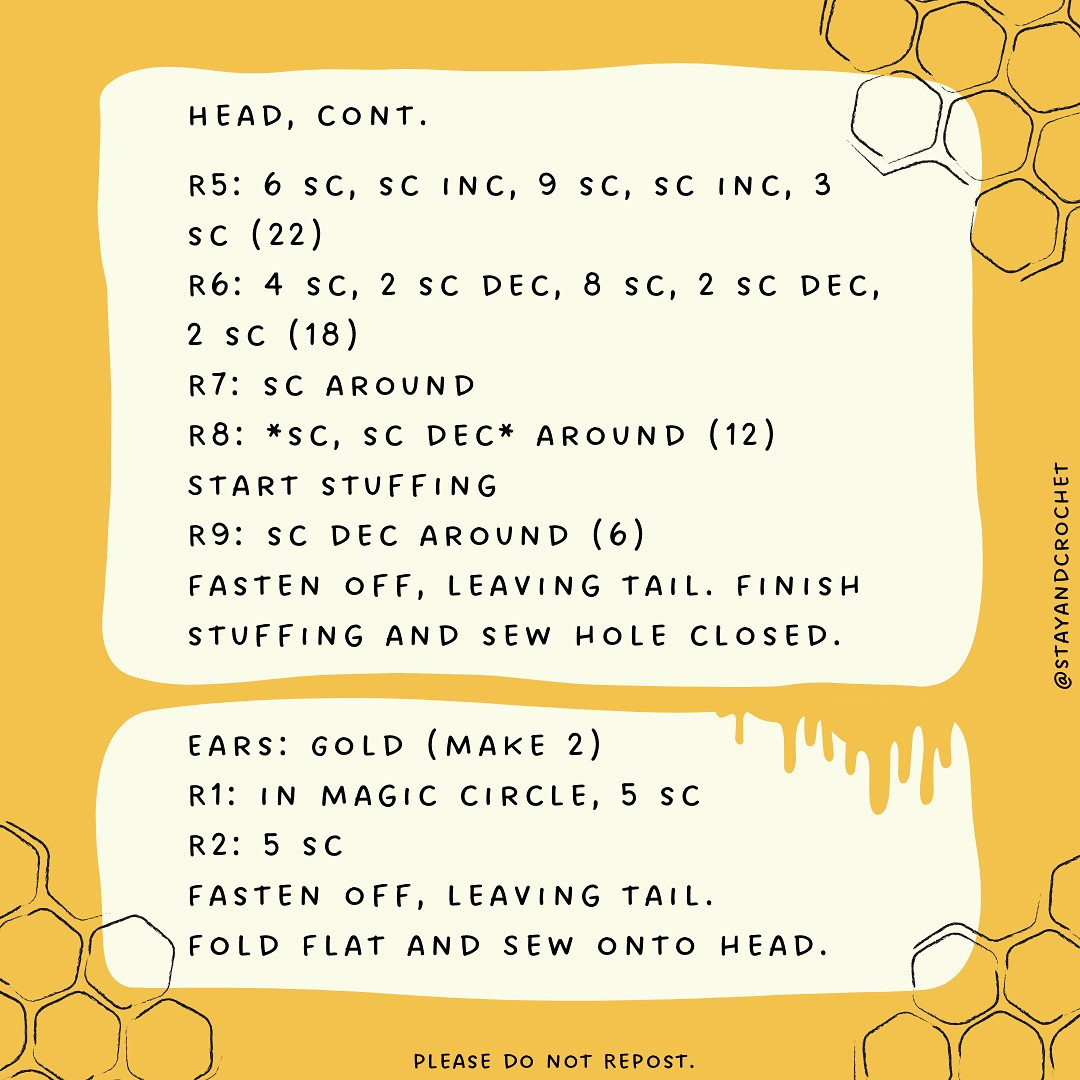 HEAD, CONT.
R5: 6 SC, SC INC, 9 SC, SC INC, 3
SC (22)
R6: 4 SC, 2 SC DEC, 8 SC, 2 SC DEC,
2 SC (18)
R7: SC AROUND
R8: *SC, SC DEC* AROUND (12)
START STUFFING
R9: SC DEC AROUND (6)
FASTEN OFF, LEAVING TAIL. FINISH
STUFFING AND SEW HOLE CLOSED.
EARS: GOLD (MAKE 2)
R1: IN MAGIC CIRCLE, 5 SC
R2: 5 SC
FASTEN OFF, LEAVING TAIL.
FOLD FLAT AND SEW ONTO HEAD.
@STAYANDCROCHET
PLEASE DO NOT REPOST.